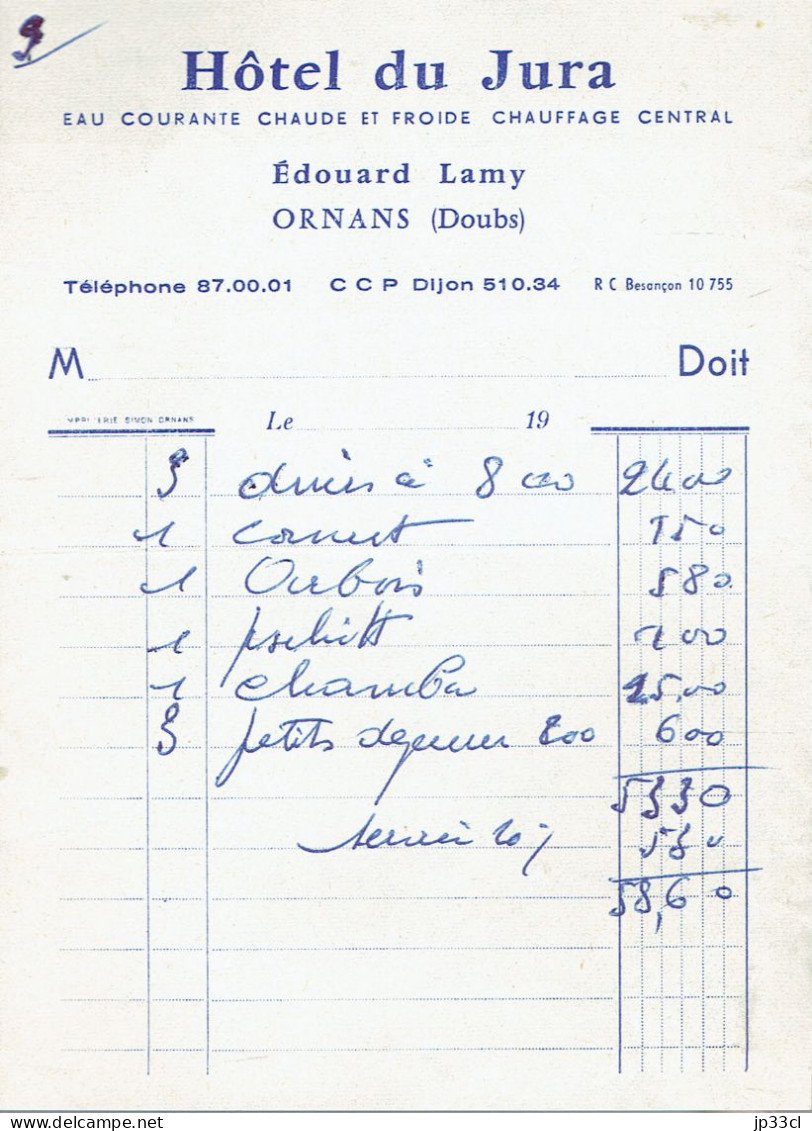 9
Hôtel du Jura
EAU COURANTE CHAUDE ET FROIDE CHAUFFAGE CENTRAL
Édouard Lamy
ORNANS (Doubs)
Téléphone 87.00.01 C C P Dijon 510.34 R C Besançon 10 755
M Doit
IMPRIMERIE SIMON ORNANS Le 19
3 diners à 8 00 2400
1 150
1 Arbois 580
1 pschitt 100
1 chambre 1500
3 petits dejeuner 200 600
5330
530
58,60
© delcampe.net jp33cl